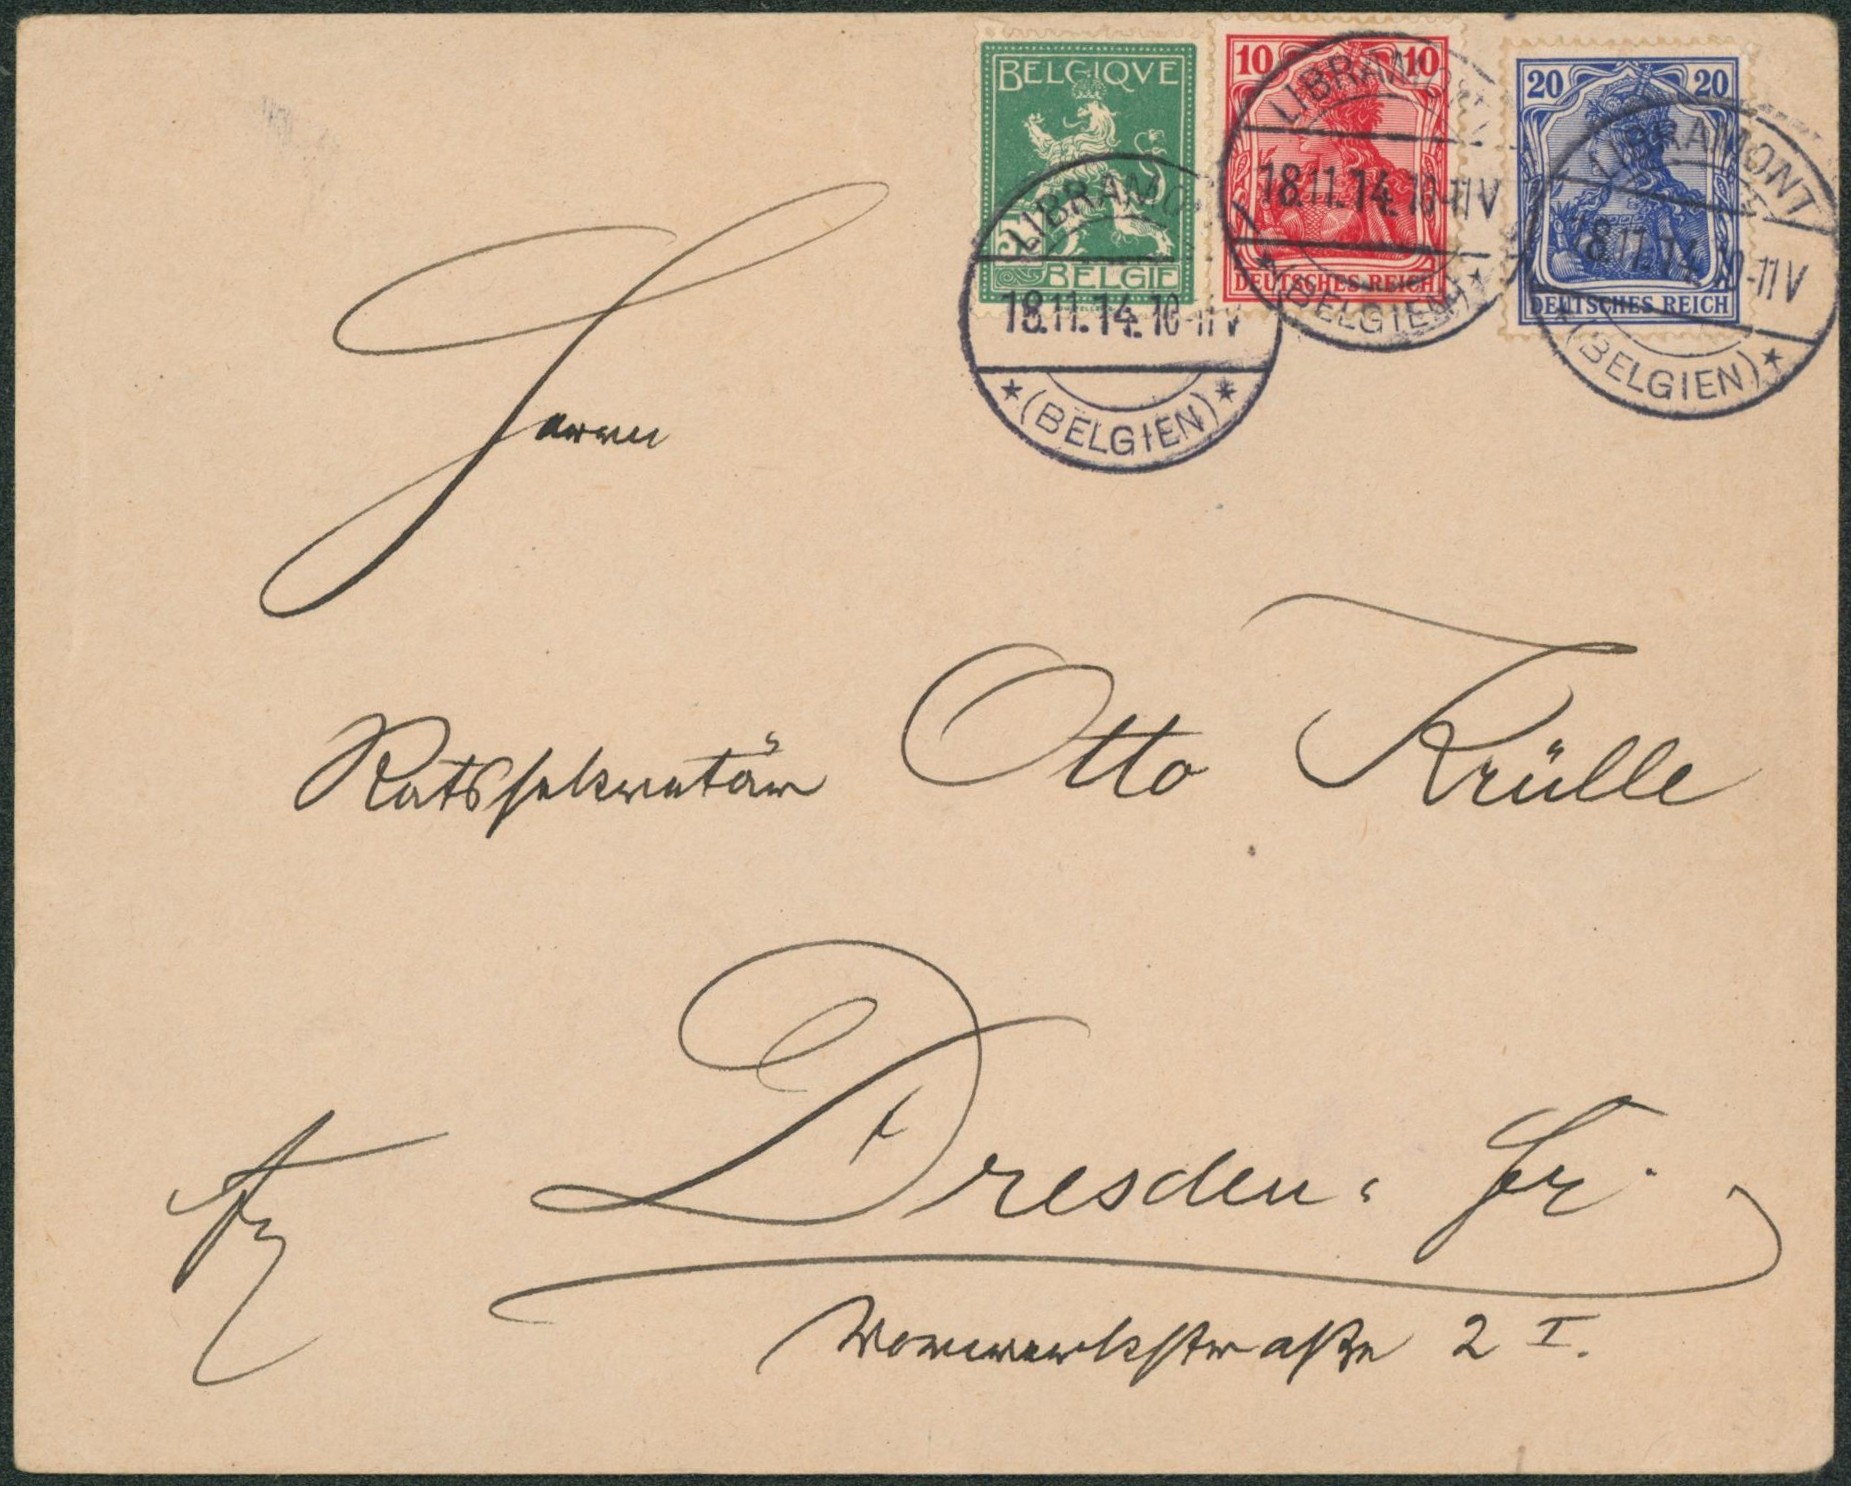 BELGIQVE
BELGIE
10 10
DEUTSCHES REICH
20 20
DEUTSCHES REICH
LIBRAMONT
18.11.14. 10-11 V
* (BELGIEN) *
LIBRAMONT
18.11.14. 10-11 V
* (BELGIEN) *
LIBRAMONT
18.11.14. 10-11 V
* (BELGIEN) *
Herrn
Ratssekretär Otto Krülle
Dresden-
Vorwerkstraße 2 I.